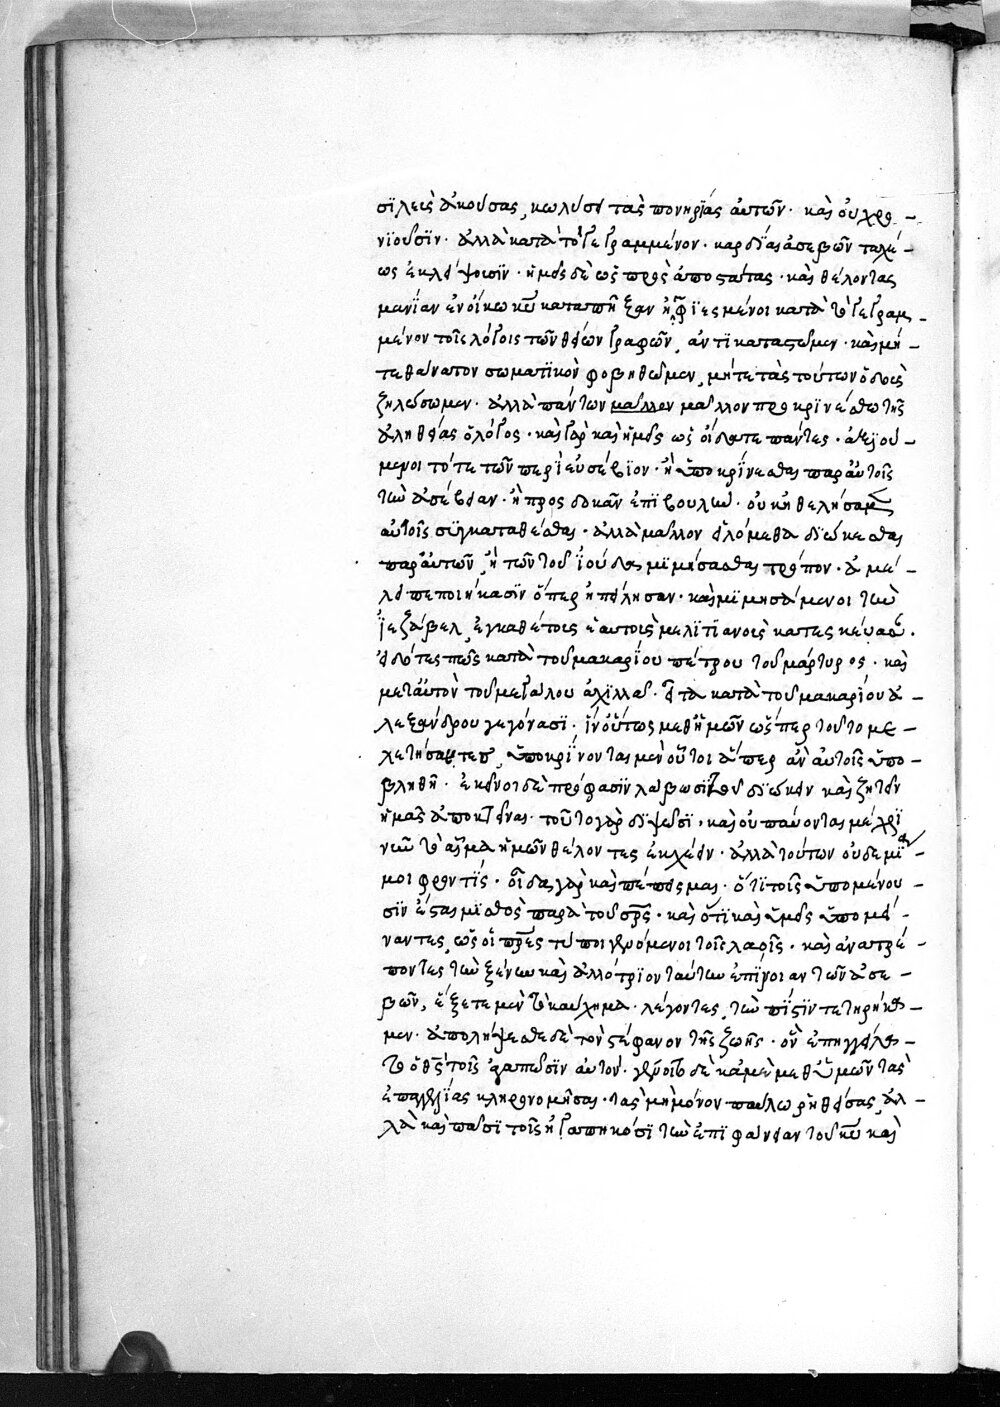 σϊλεὺς ἀκούσας, κωλύσει τὰς πονηρίας αὐτῶν· καὶ οὐ χρο -
νϊοῦσϊν· ἀλλὰ κατὰ τὸ γεγραμμένον· καρδΐαι ἀσεβῶν ταχέ -
ως ἐκλείψουσϊν· ἡμεῖς δὲ ὡς πρὸς ἀποστάτας· καὶ θέλοντας
μανΐαν ἐν οἴκω κυ καταπῆξαι ἠμφϊεσμένοι κατὰ τὸ γεγραμ -
μένον τοῖς λόγοις τῶν θείων γραφῶν, ἀντϊκαταστῶμεν· καὶ μή -
τε θάνατον σωματϊκὸν φοβηθῶμεν, μήτε τὰς τούτων ὁδοὺς
ζηλώσωμεν· ἀλλὰ πάντων μάλλον μᾶλλον προκρϊνέσθω τῆς
ἀληθείας ὁ λόγος· καὶ γὰρ καὶ ἡμεῖς ὡς οἴδατε πάντες· ἀξϊού -
μενοι τότε τῶν περὶ εὐσέβϊον· ἢ ὑποκρΐνεσθαι παρ αὐτοῖς
τὴν ἀσέβειαν· ἢ προσδοκᾶν ἐπϊβουλὴν· οὐκ ἠθελήσαμεν
αὐτοῖς συγκαταθέσθαι· ἀλλὰ μᾶλλον εἱλόμεθα δϊώκεσθαι
παρ αὐτῶν, ἢ τὸν τοῦ ἰούδα μϊμήσασθαι τρόπον· ἀμέ -
λει πεποιήκασϊν ὅπερ ἠπείλησαν· καὶ μϊμησάμενοι τὴν
ἰεζάβελ, ἐγκαθέτοις ἑαυτοῖς μελϊτϊανοὺς κατεσκεύασαν·
εἰδότες πῶς κατὰ τοῦ μακαρΐου πέτρου τοῦ μάρτυρος· καὶ
μετ αὐτὸν τοῦ μεγάλου ἀχϊλλᾶ· εἶτα κατὰ τοῦ μακαρΐου ἀ -
λεξάνδρου γεγόνασϊ· ἵν οὕτως μεθ ἡμῶν ὥσπερ τοῦτο με -
λετήσαντες, ὑποκρΐνονται μὲν οὗτοι ἅπερ ἂν αὐτοῖς ὑπο -
βληθῆ· ἐκεῖνοι δὲ πρόφασϊν λάβωσϊ τοῦ δϊώκειν καὶ ζητεῖν
ἡμᾶς ἀποκτεῖναι· τοῦτο γὰρ δϊψῶσϊ· καὶ οὐ παύονται μέχρϊ
νῦν τὸ αἷμα ἡμῶν θέλοντες ἐκχέειν· ἀλλὰ τούτων οὐδεμΐα -
μοι φροντΐς· οἶδα γὰρ καὶ πέπεισμαι· ὅτϊ τοῖς ὑπομένου -
σϊν ἔσται μϊσθὸς παρὰ τοῦ σρς· καὶ ὅτϊ καὶ ὑμεῖς ὑπομεί -
ναντες, ὡς οἱ πρες τύποι γενόμενοι τοῖς λαοῖς· καὶ ἀνατρέ -
ποντες τὴν ξένην καὶ ἀλλότρϊον ταύτην ἐπΐνοιαν τῶν ἀσε -
βῶν, ἕξετε μὲν τὸ καύχημα· λέγοντες, τὴν πΐστϊν τετηρήκα -
μεν· ἀπολήψεσθε δὲ τὸν στέφανον τῆς ζωῆς· ὃν ἐπηγγείλα -
το ὁ θς τοῖς ἀγαπῶσϊν αὐτὸν· γένοιτο δὲ κἀμὲ μεθ ὑμῶν τὰς
ἐπαγγελίας κληρονομῆσαι· τὰς μὴ μόνον παύλω ῥηθείσας, ἀλ -
λὰ καὶ πᾶσϊ τοῖς ἠγαπηκόσϊ τὴν ἐπϊφάνειαν τοῦ κυ καὶ